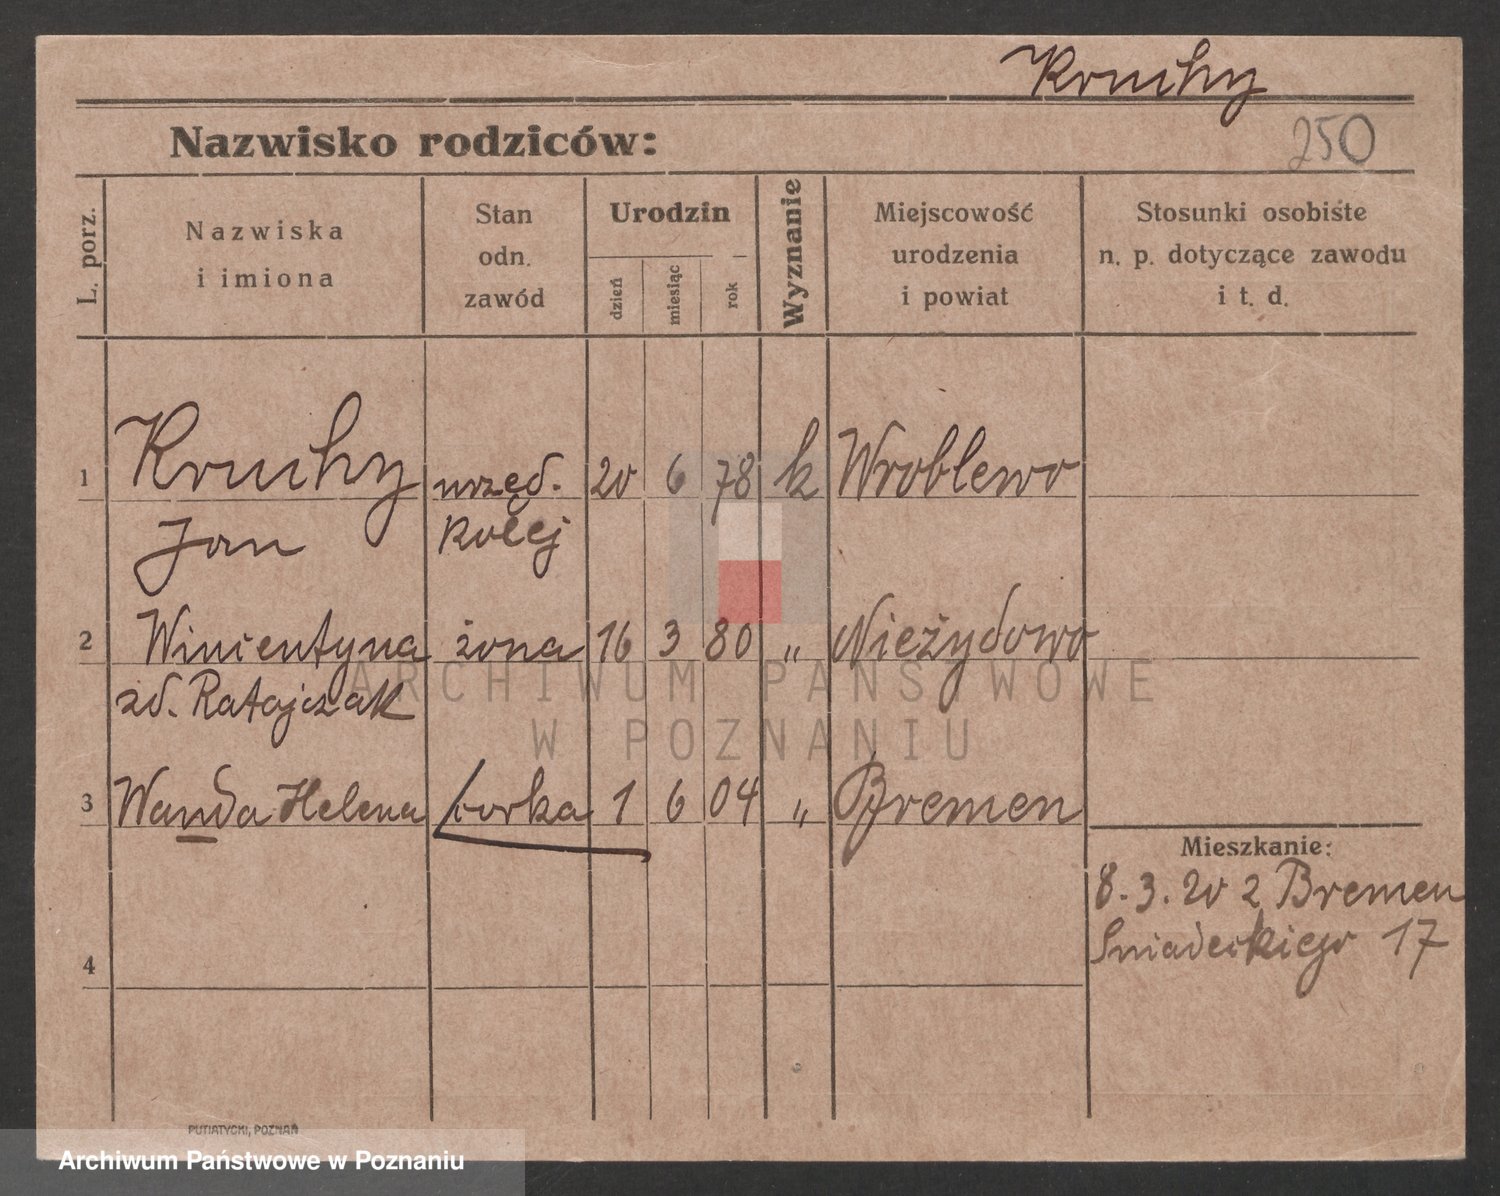 Kruchy
Nazwisko rodziców:
250
L. porz.
Nazwiska
i imiona
Stan
odn.
zawód
Urodzin
dzień
miesiąc
rok
Wyznanie
Miejscowość
urodzenia
i powiat
Stosunki osobiste
n. p. dotyczące zawodu
i t. d.
1 Kruchy urzęd. 20 6 78 k Wroblewo
Jan kolej
2 Wincentyna żona 16 3 80 „ Nieżydowo
zd. Ratajczak
3 Wanda Helena córka 1 6 04 „ Bremen
Mieszkanie:
8.3.20 z Bremen
Sniadeckiego 17
4
ARCHIWUM PAŃSTWOWE
W POZNANIU
PUTIATYCKI, POZNAŃ
Archiwum Państwowe w Poznaniu